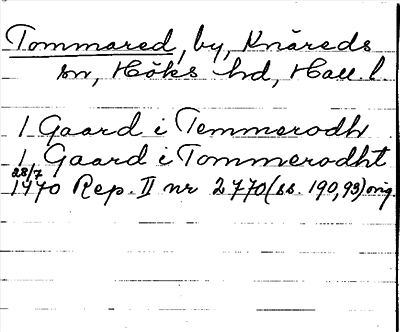 Tommared, by, Knäreds
sn, Höks hd, Hall. l.
1 Gaard i Temmerodh
1 Gaard i Tommerodht
28/7
1470 Rep. II nr 2770 (ss. 190, 93) orig.